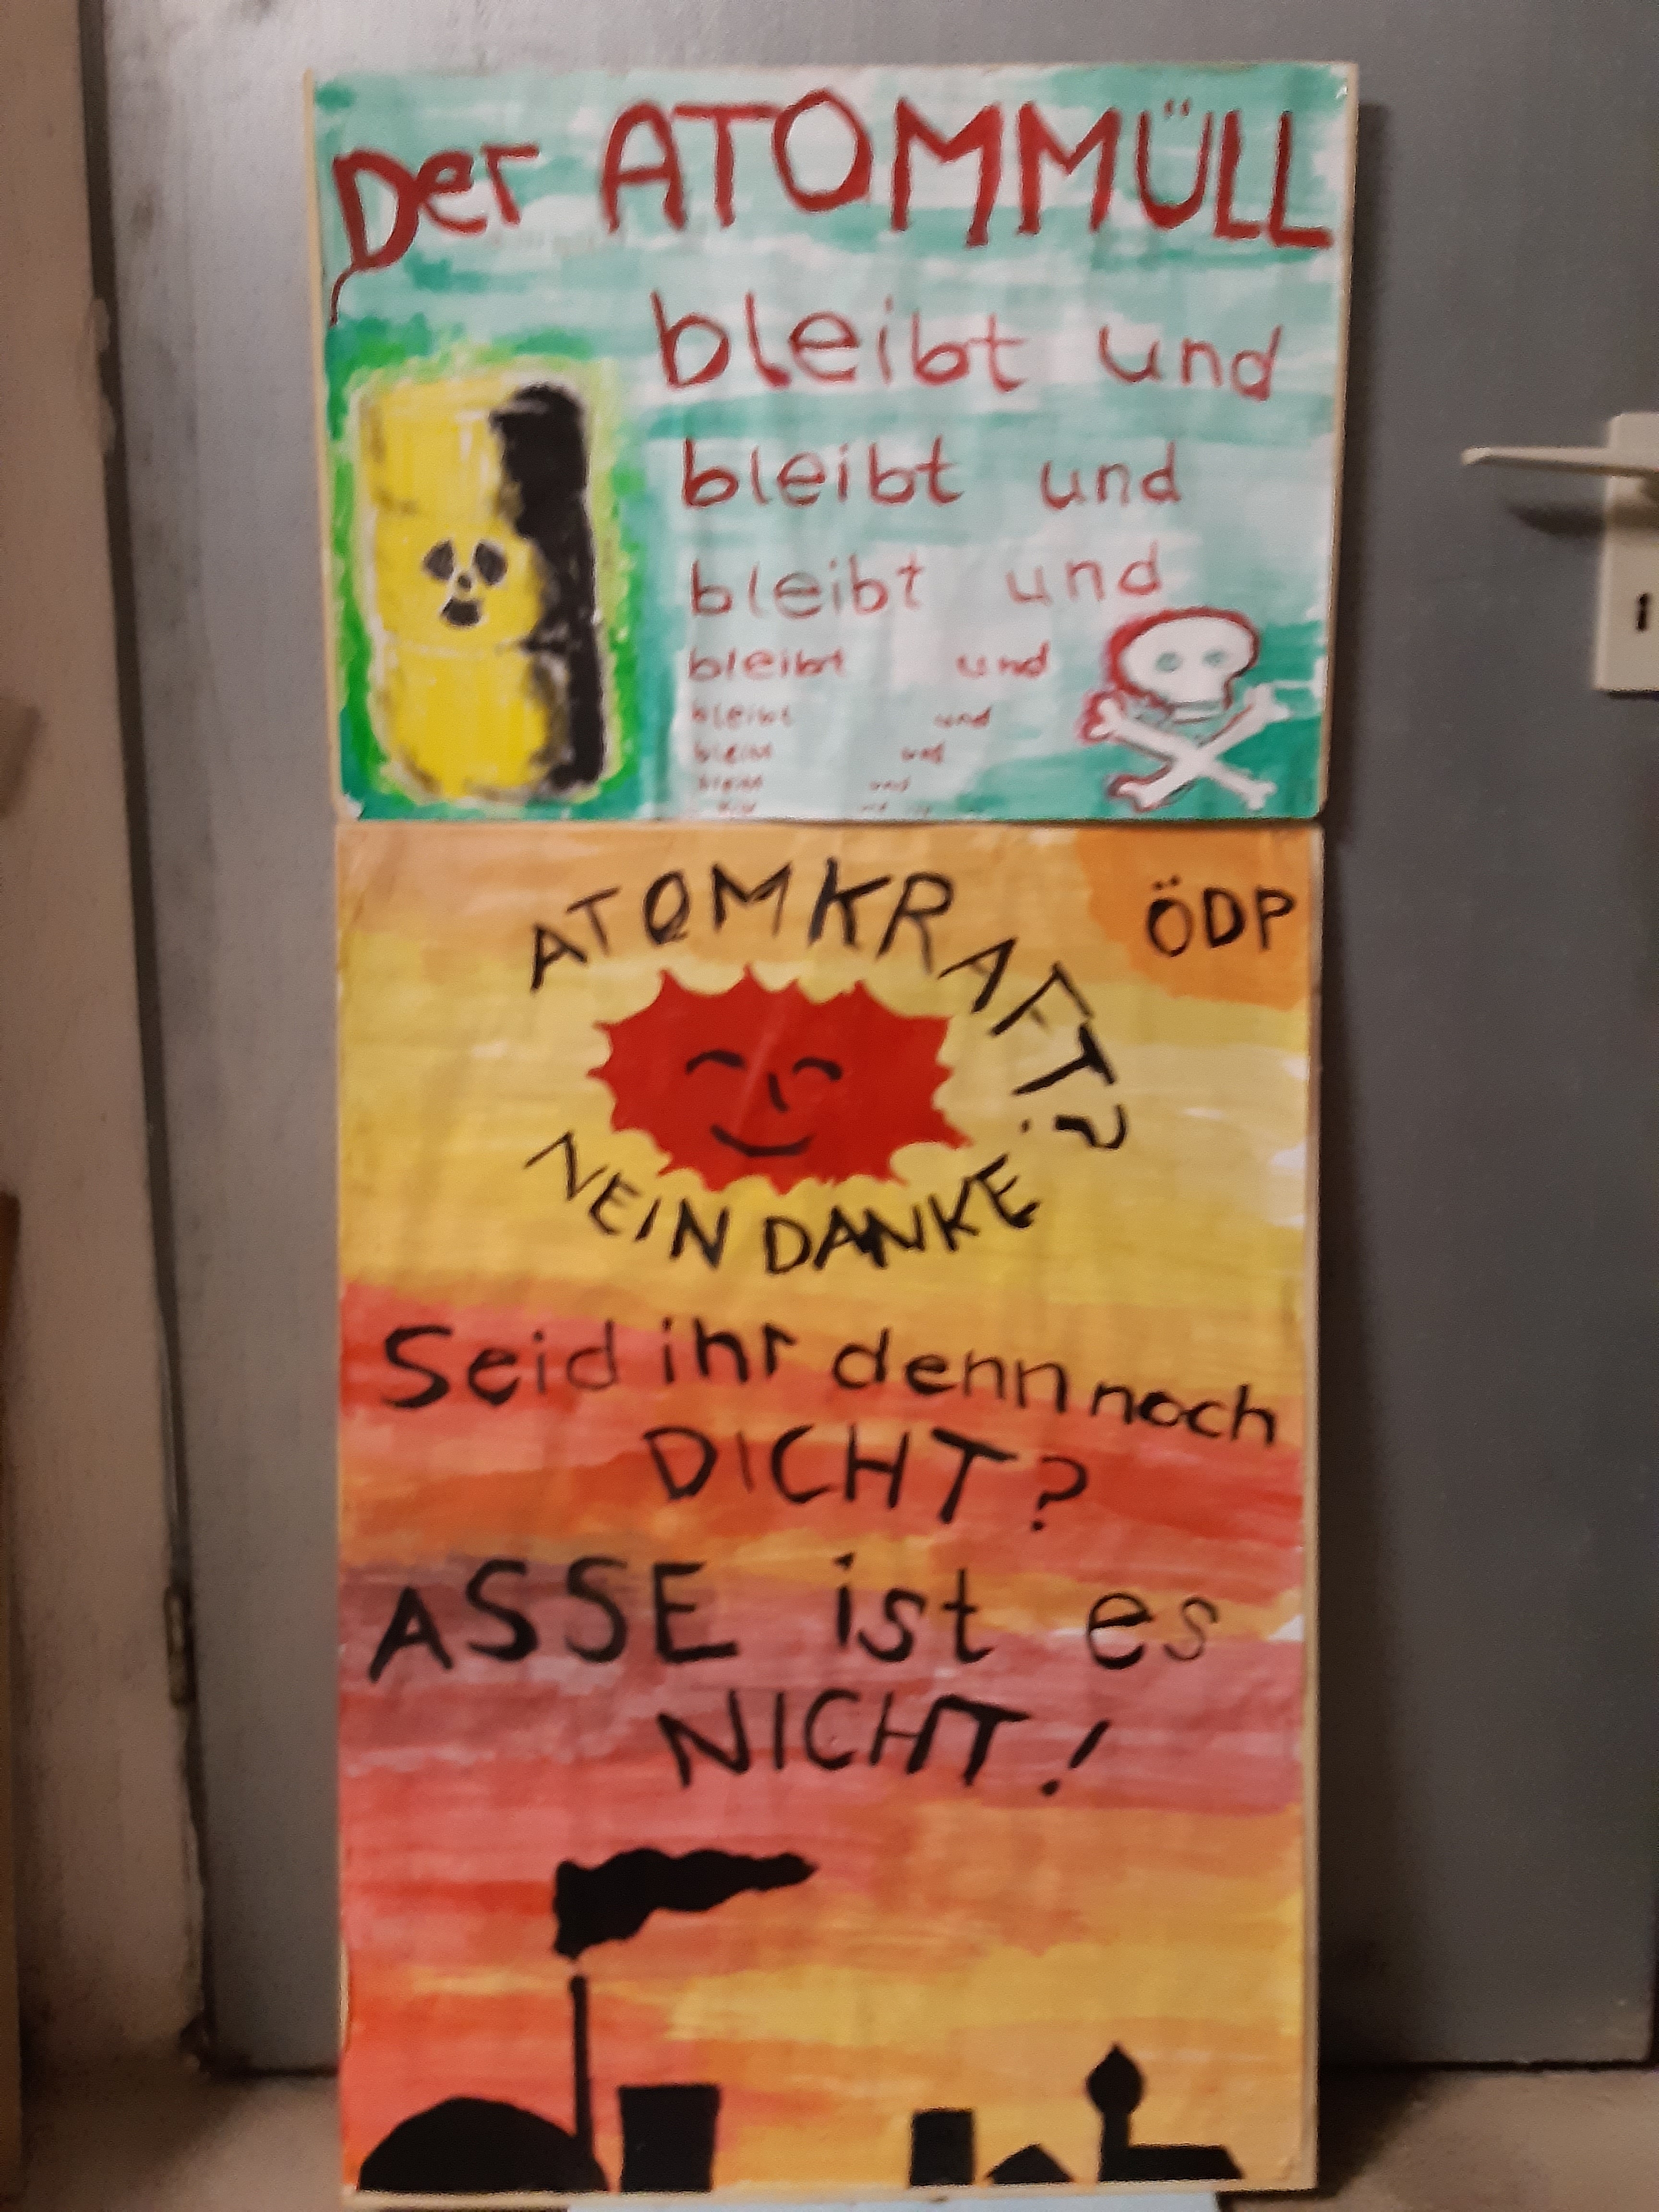 Der ATOMMÜLL
bleibt und
bleibt und
bleibt und
bleibt und
bleibt und
bleibt und
bleibt und
ATOMKRAFT?
NEIN DANKE
ÖDP
Seid ihr denn noch
DICHT?
ASSE ist es
NICHT!